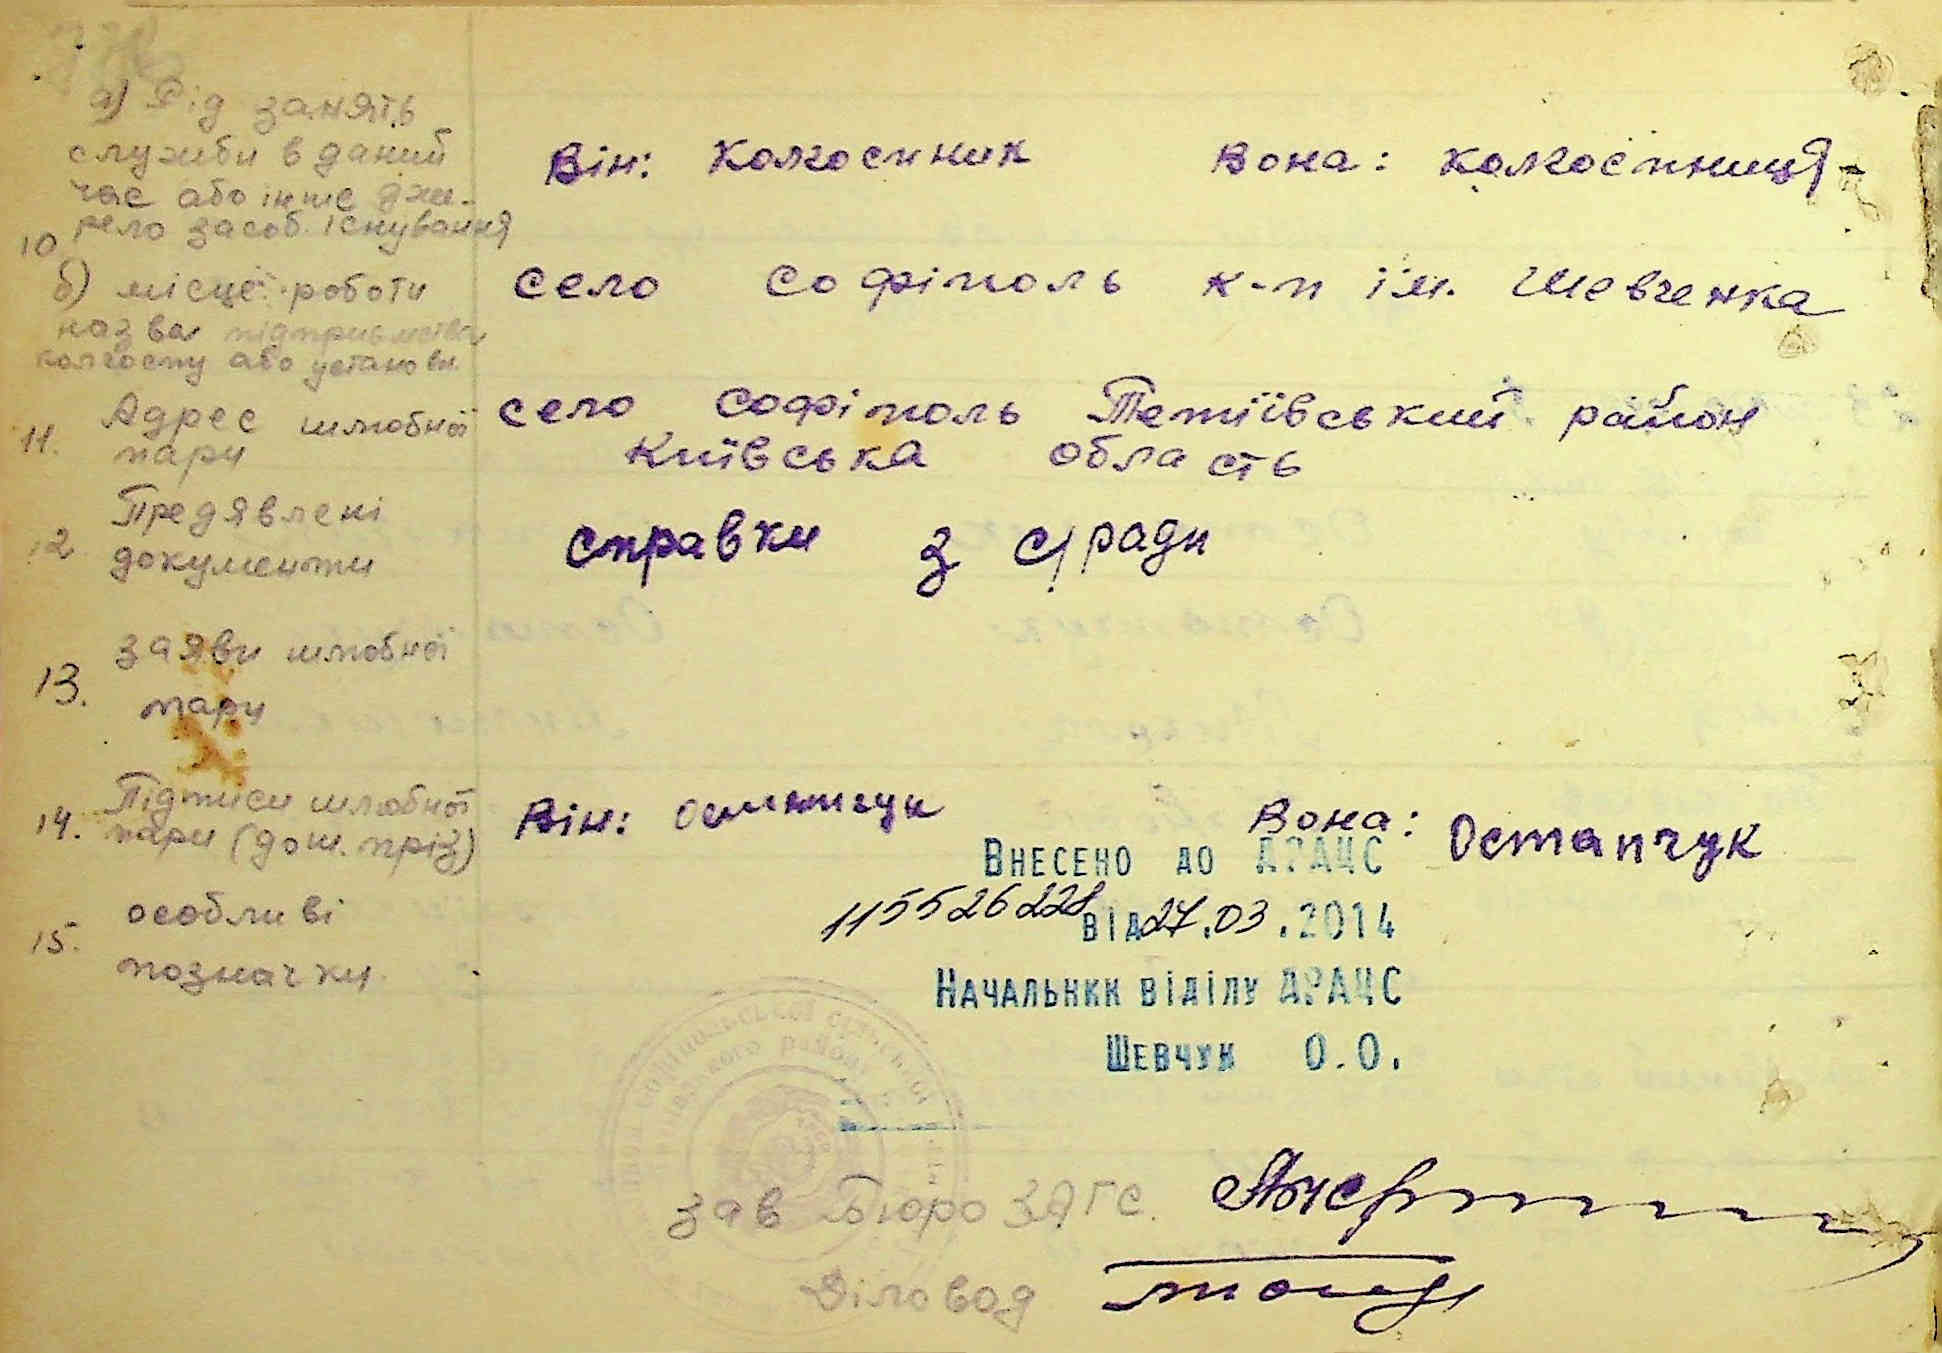 а) Рід занять
служби в даний
час або інше дже-
рело засоб. існування
10
Він: колгоспник Вона: колгоспниця
б) місце роботи
назва підприємства
колгоспу або установи
село Софіполь к-п ім. Шевченка
11. Адрес шлюбної
пари
село Софіполь Тетіївський район
Київська область
12 Предявлені
документи
справки з с/ради
13. заяви шлюбної
пари
14. Підписи шлюбної
пари (дош. пріз)
Він: Остапчук Вона: Остапчук
Внесено до ДРАЦС
115526228 від 27.03.2014
Начальник відділу ДРАЦС
Шевчук О.О.
15. особливі
позначки
зав Бюро ЗАГС.
Діловод